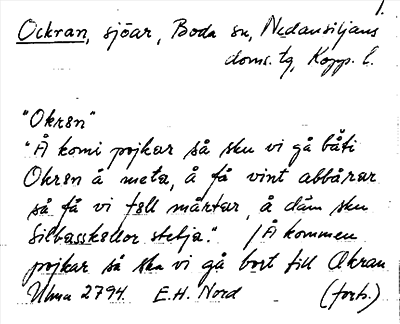 1.
Ockran, sjöar, Boda sn, Nedansiljans
doms. tg, Kopp. l.
"Okrsn"
"Å komi pojkar så sku vi gå båti
Okrsn å meta, å få vint abbårar
så få vi fsll mårtar, å däm sku
Silbasskallor stelja." /Å kommen
pojkar så ska vi gå bort till Okran
Ulma 2794. E.H. Nord (forts.)